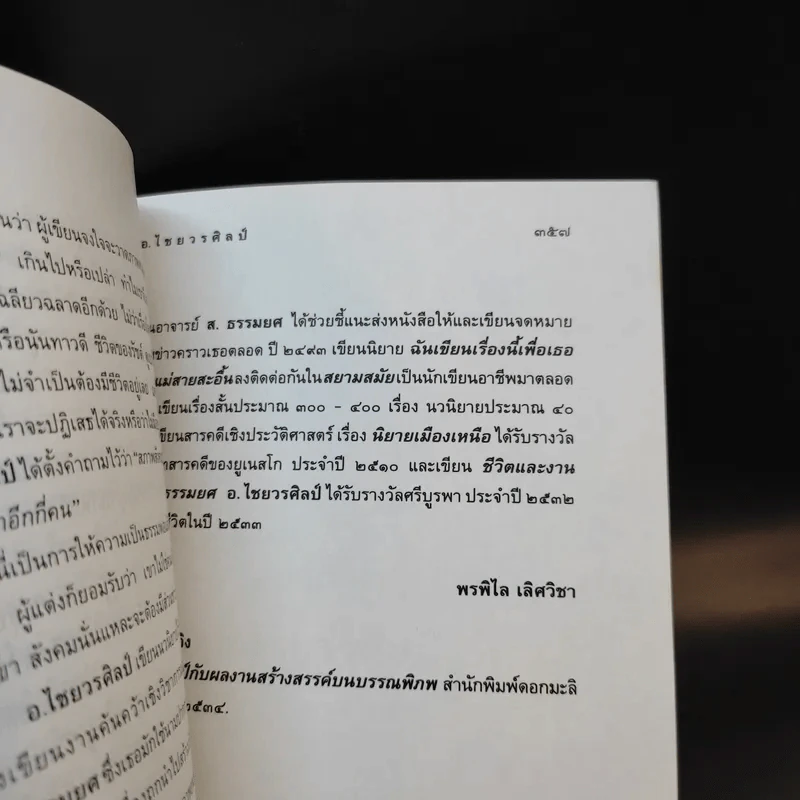 นว่า ผู้เขียนจงใจจะวาดภาพ
เกินไปหรือเปล่า ทำไม
ฉลียวฉลาดอีกด้วย ไม่ว่า
รือนันทาวดี ชีวิตของรัช
ไม่จำเป็นต้องมีชีวิตอยู่
ราจะปฏิเสธได้จริงหรือว่า
ป์ ได้ตั้งคำถามไว้ว่า
าอีกกี่คน”
นี่เป็นการให้ความเป็นธรรม
ผู้แต่งก็ยอมรับว่า เขา
ยา สังคมนั่นแหละจะต้องมี
อ.ไชยวรศิลป์ เขียน
งเขียนงานค้นคว้าเชิงวิชาการ
มยศ ซึ่งเธอมักใช้นาม
อ.ไชยวรศิลป์
๓๕๗
นอาจารย์ ส. ธรรมยศ ได้ช่วยชี้แนะส่งหนังสือให้และเขียนจดหมาย
ข่าวคราวเธอตลอด ปี ๒๔๙๓ เขียนนิยาย ฉันเขียนเรื่องนี้เพื่อเธอ
แม่สายสะอื้นลงติดต่อกันในสยามสมัยเป็นนักเขียนอาชีพมาตลอด
เขียนเรื่องสั้นประมาณ ๓๐๐ - ๔๐๐ เรื่อง นวนิยายประมาณ ๔๐
ขียนสารคดีเชิงประวัติศาสตร์ เรื่อง นิยายเมืองเหนือ ได้รับรางวัล
สารคดีของยูเนสโก ประจำปี ๒๕๑๐ และเขียน ชีวิตและงาน
ธรรมยศ อ.ไชยวรศิลป์ ได้รับรางวัลศรีบูรพา ประจำปี ๒๕๓๒
ชีวิตในปี ๒๕๓๓
พรพิไล เลิศวิชา
ป์กับผลงานสร้างสรรค์บนบรรณพิภพ สำนักพิมพ์ดอกมะลิ
๕๓๔.